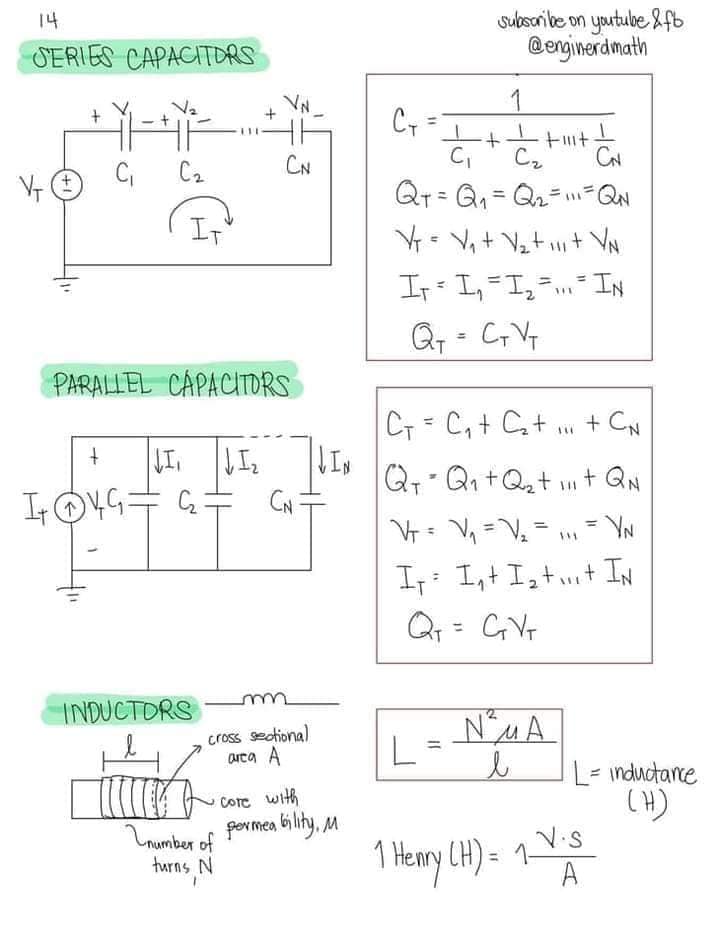 14
subscribe on youtube & fb
@enginerdmath
SERIES CAPACITORS
+ V₁ - + V₂ - ... + V_N -
C₁ C₂ C_N
V_T
I_T
C_T = 1 / (1/C₁ + 1/C₂ + ... + 1/C_N)
Q_T = Q₁ = Q₂ = ... = Q_N
V_T = V₁ + V₂ + ... + V_N
I_T = I₁ = I₂ = ... = I_N
Q_T = C_T V_T
PARALLEL CAPACITORS
+ I₁ I₂ I_N
I_T V_T C₁ C₂ C_N
-
C_T = C₁ + C₂ + ... + C_N
Q_T = Q₁ + Q₂ + ... + Q_N
V_T = V₁ = V₂ = ... = V_N
I_T = I₁ + I₂ + ... + I_N
Q_T = C_T V_T
INDUCTORS
l
cross sectional
area A
core with
permeability, μ
number of
turns, N
L = N²μA / l
L = inductance
(H)
1 Henry (H) = 1 V·s / A